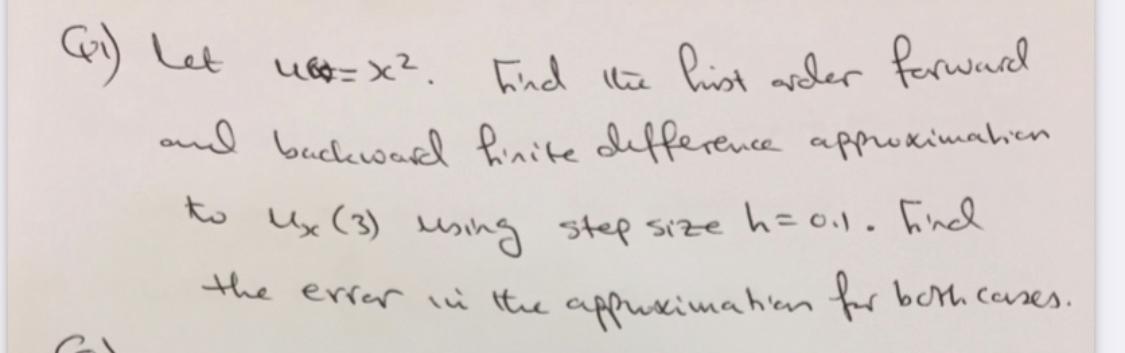 Q1) Let u(x)=x². Find the first order forward
and backward finite difference approximation
to uₓ(3) using step size h=0.1. Find
the error in the approximation for both cases.